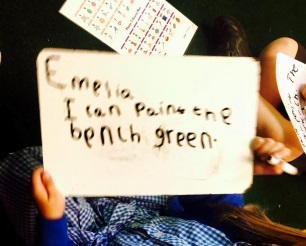 Emelia
I can paint the
bench green.
The